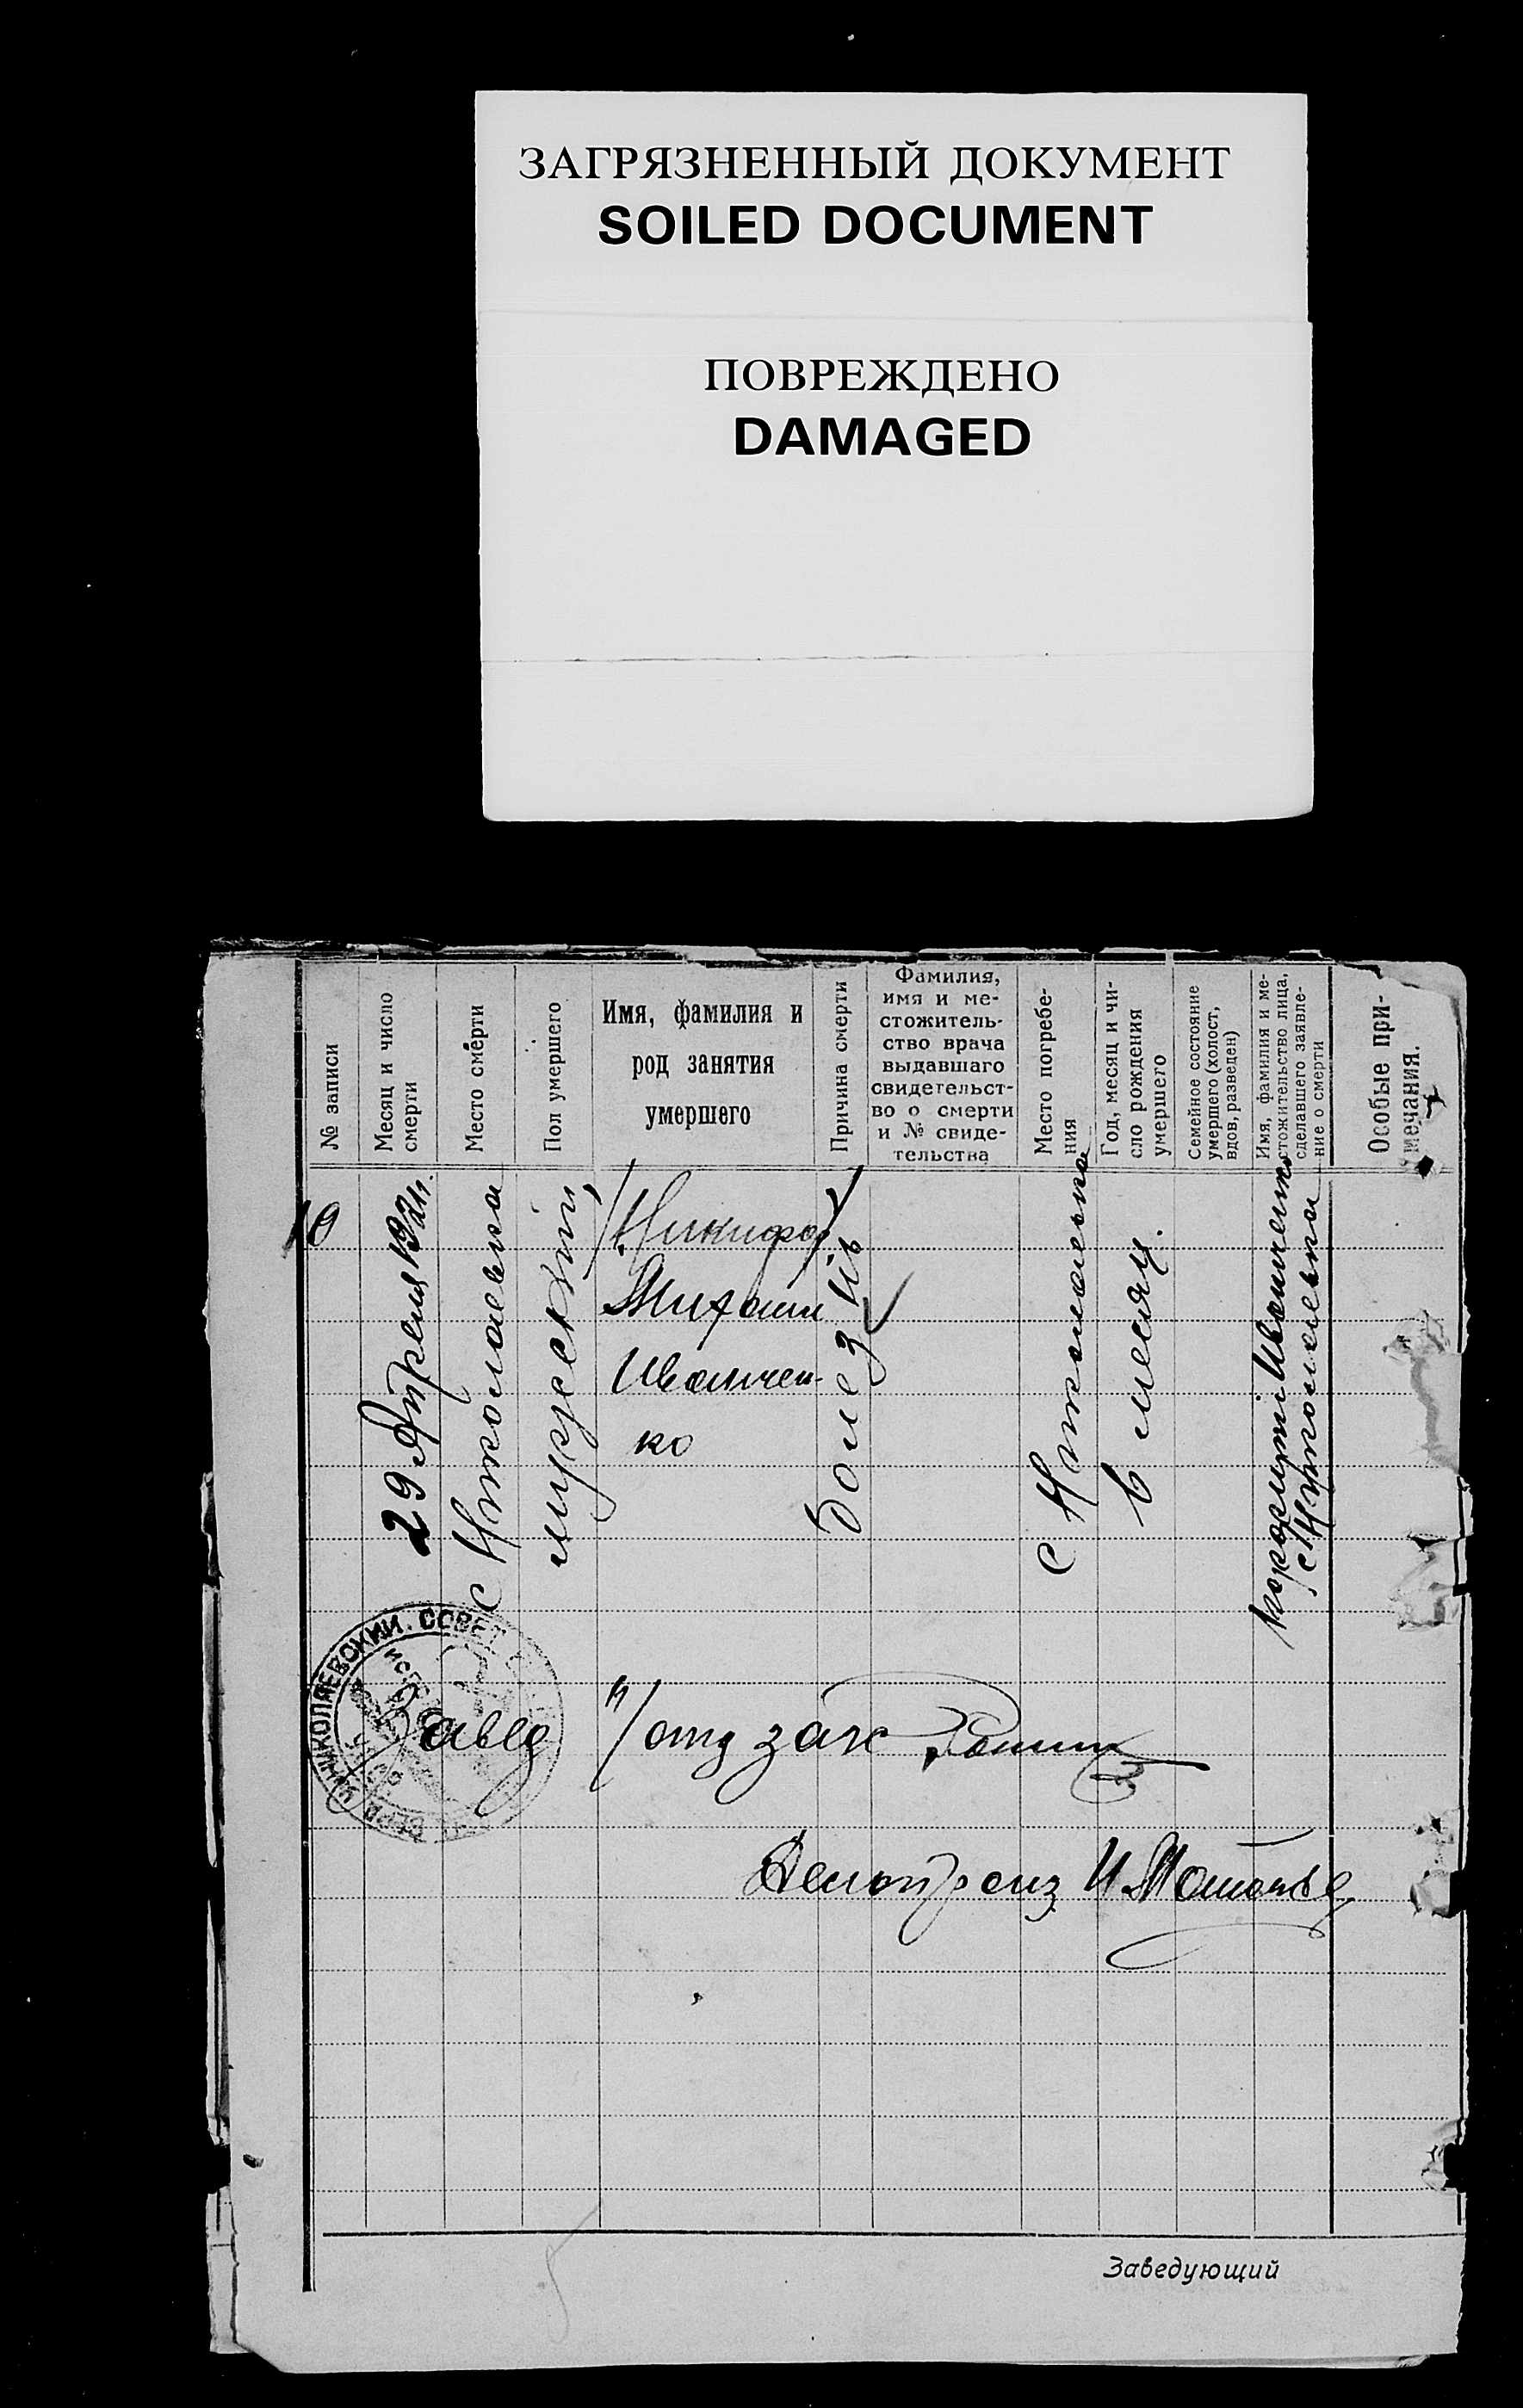 ЗАГРЯЗНЕННЫЙ ДОКУМЕНТ
SOILED DOCUMENT
ПОВРЕЖДЕНО
DAMAGED
№ записи
Месяц и число
смерти
Место смерти
Пол умершего
Имя, фамилия и
род занятия
умершего
Причина смерти
Фамилия,
имя и ме-
стожитель-
ство врача
выдавшаго
свидетельст-
во о смерти
и № свиде-
тельства
Место погребе-
ния
Год, месяц и чи-
сло рождения
умершего
Семейное состояние
умершего (холост,
вдов, разведен)
Имя, фамилия и ме-
стожительство лица,
сделавшего заявле-
ние о смерти
Особые при-
мечания.
10
29 Апреля
с Николаевка
мужеский
Никифор
Михаил
Иванчен-
ко
болезнь
с Николаевка
6 месяц.
Иванченко
с Николаевка
НИКОЛАЕВСКИЙ. СОВЕТ
Завед п/отд загс
Делопроиз И
Заведующий